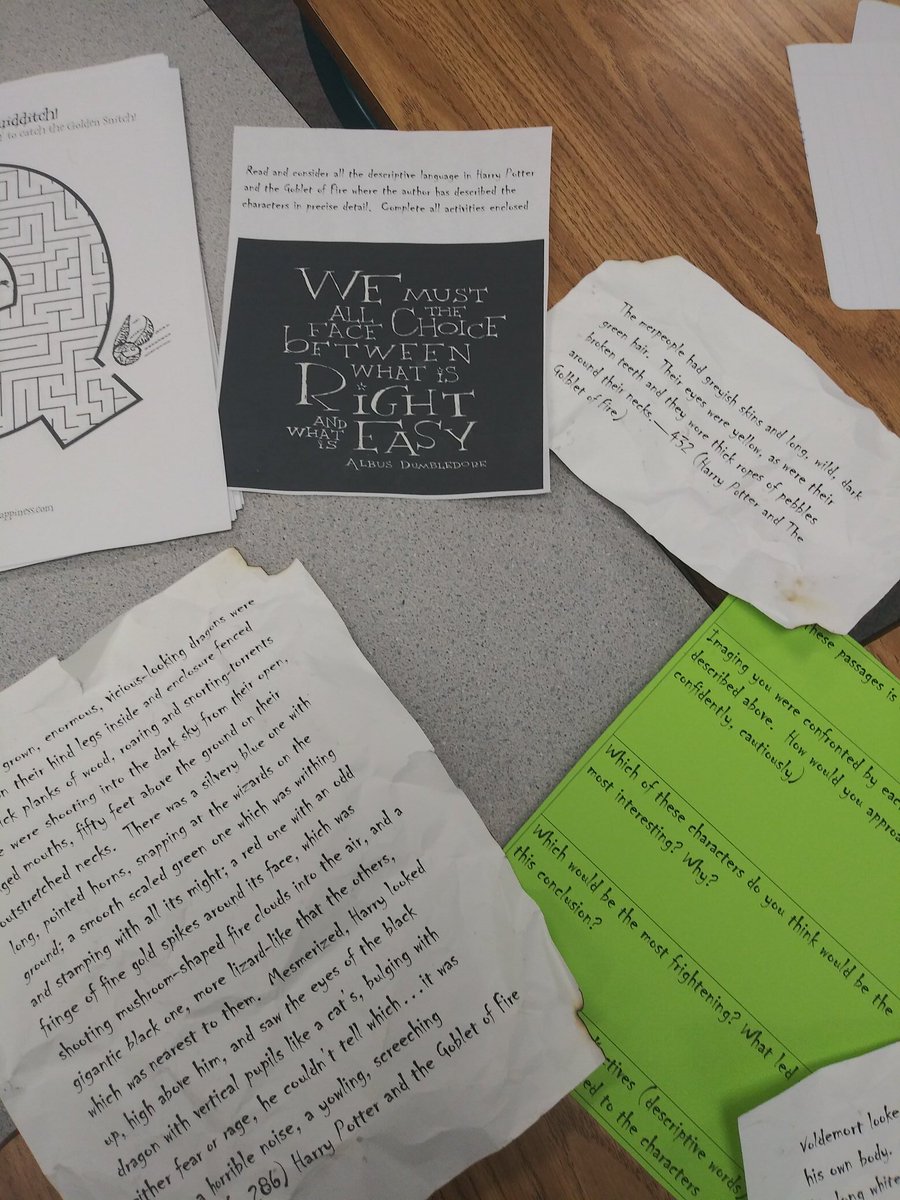 to catch the Golden Snitch!
Read and consider all the descriptive language in Harry Potter
and the Goblet of Fire where the author has described the
characters in precise detail. Complete all activities enclosed
WE MUST
ALL THE
FACE CHOICE
bETWEEN
WHAT iS
RiGHT
AND
WHAT EASY
iS
ALBUS DUMBLEDORE
The merpeople had greyish skins and long, wild, dark
green hair. Their eyes were yellow, as were their
broken teeth and they wore thick ropes of pebbles
around their necks.__432 (Harry Potter and The
Golblet of Fire)
grown, enormous, vicious-looking dragons were
n their hind legs inside and enclosure fenced
ick planks of wood, roaring and snorting-torrents
e were shooting into the dark sky from their open,
ged mouths, fifty feet above the ground on their
outstretched necks. There was a silvery blue one with
long, pointed horns, snapping at the wizards on the
ground; a smooth scaled green one which was writhing
and stamping with all its might; a red one with an odd
fringe of fine gold spikes around its face, which was
shooting mushroom-shaped fire clouds into the air, and a
gigantic black one, more lizard-like that the others,
which was nearest to them. Mesmerized, Harry looked
up, high above him, and saw the eyes of the black
dragon with vertical pupils like a cat's, bulging with
either fear or rage, he couldn't tell which...it was
a horrible noise, a yowling, screeching
286) Harry Potter and the Goblet of Fire
These passages is
Imaging you were confronted by each
described above. How would you approa
confidently, cautiously)
Which of these characters do you think would be the
most interesting? Why?
Which would be the most frightening? What led
this conclusion?
ctives (descriptive words
ed to the characters
Voldemort looke
his own body.
long white